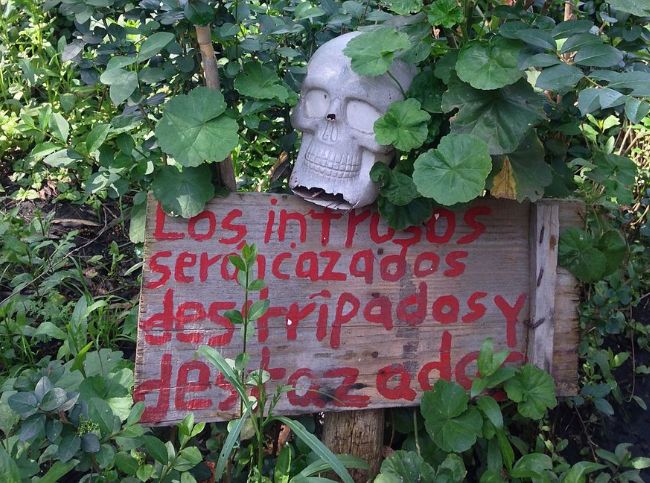 Los intrusos
seran cazados
destripados y
destazados